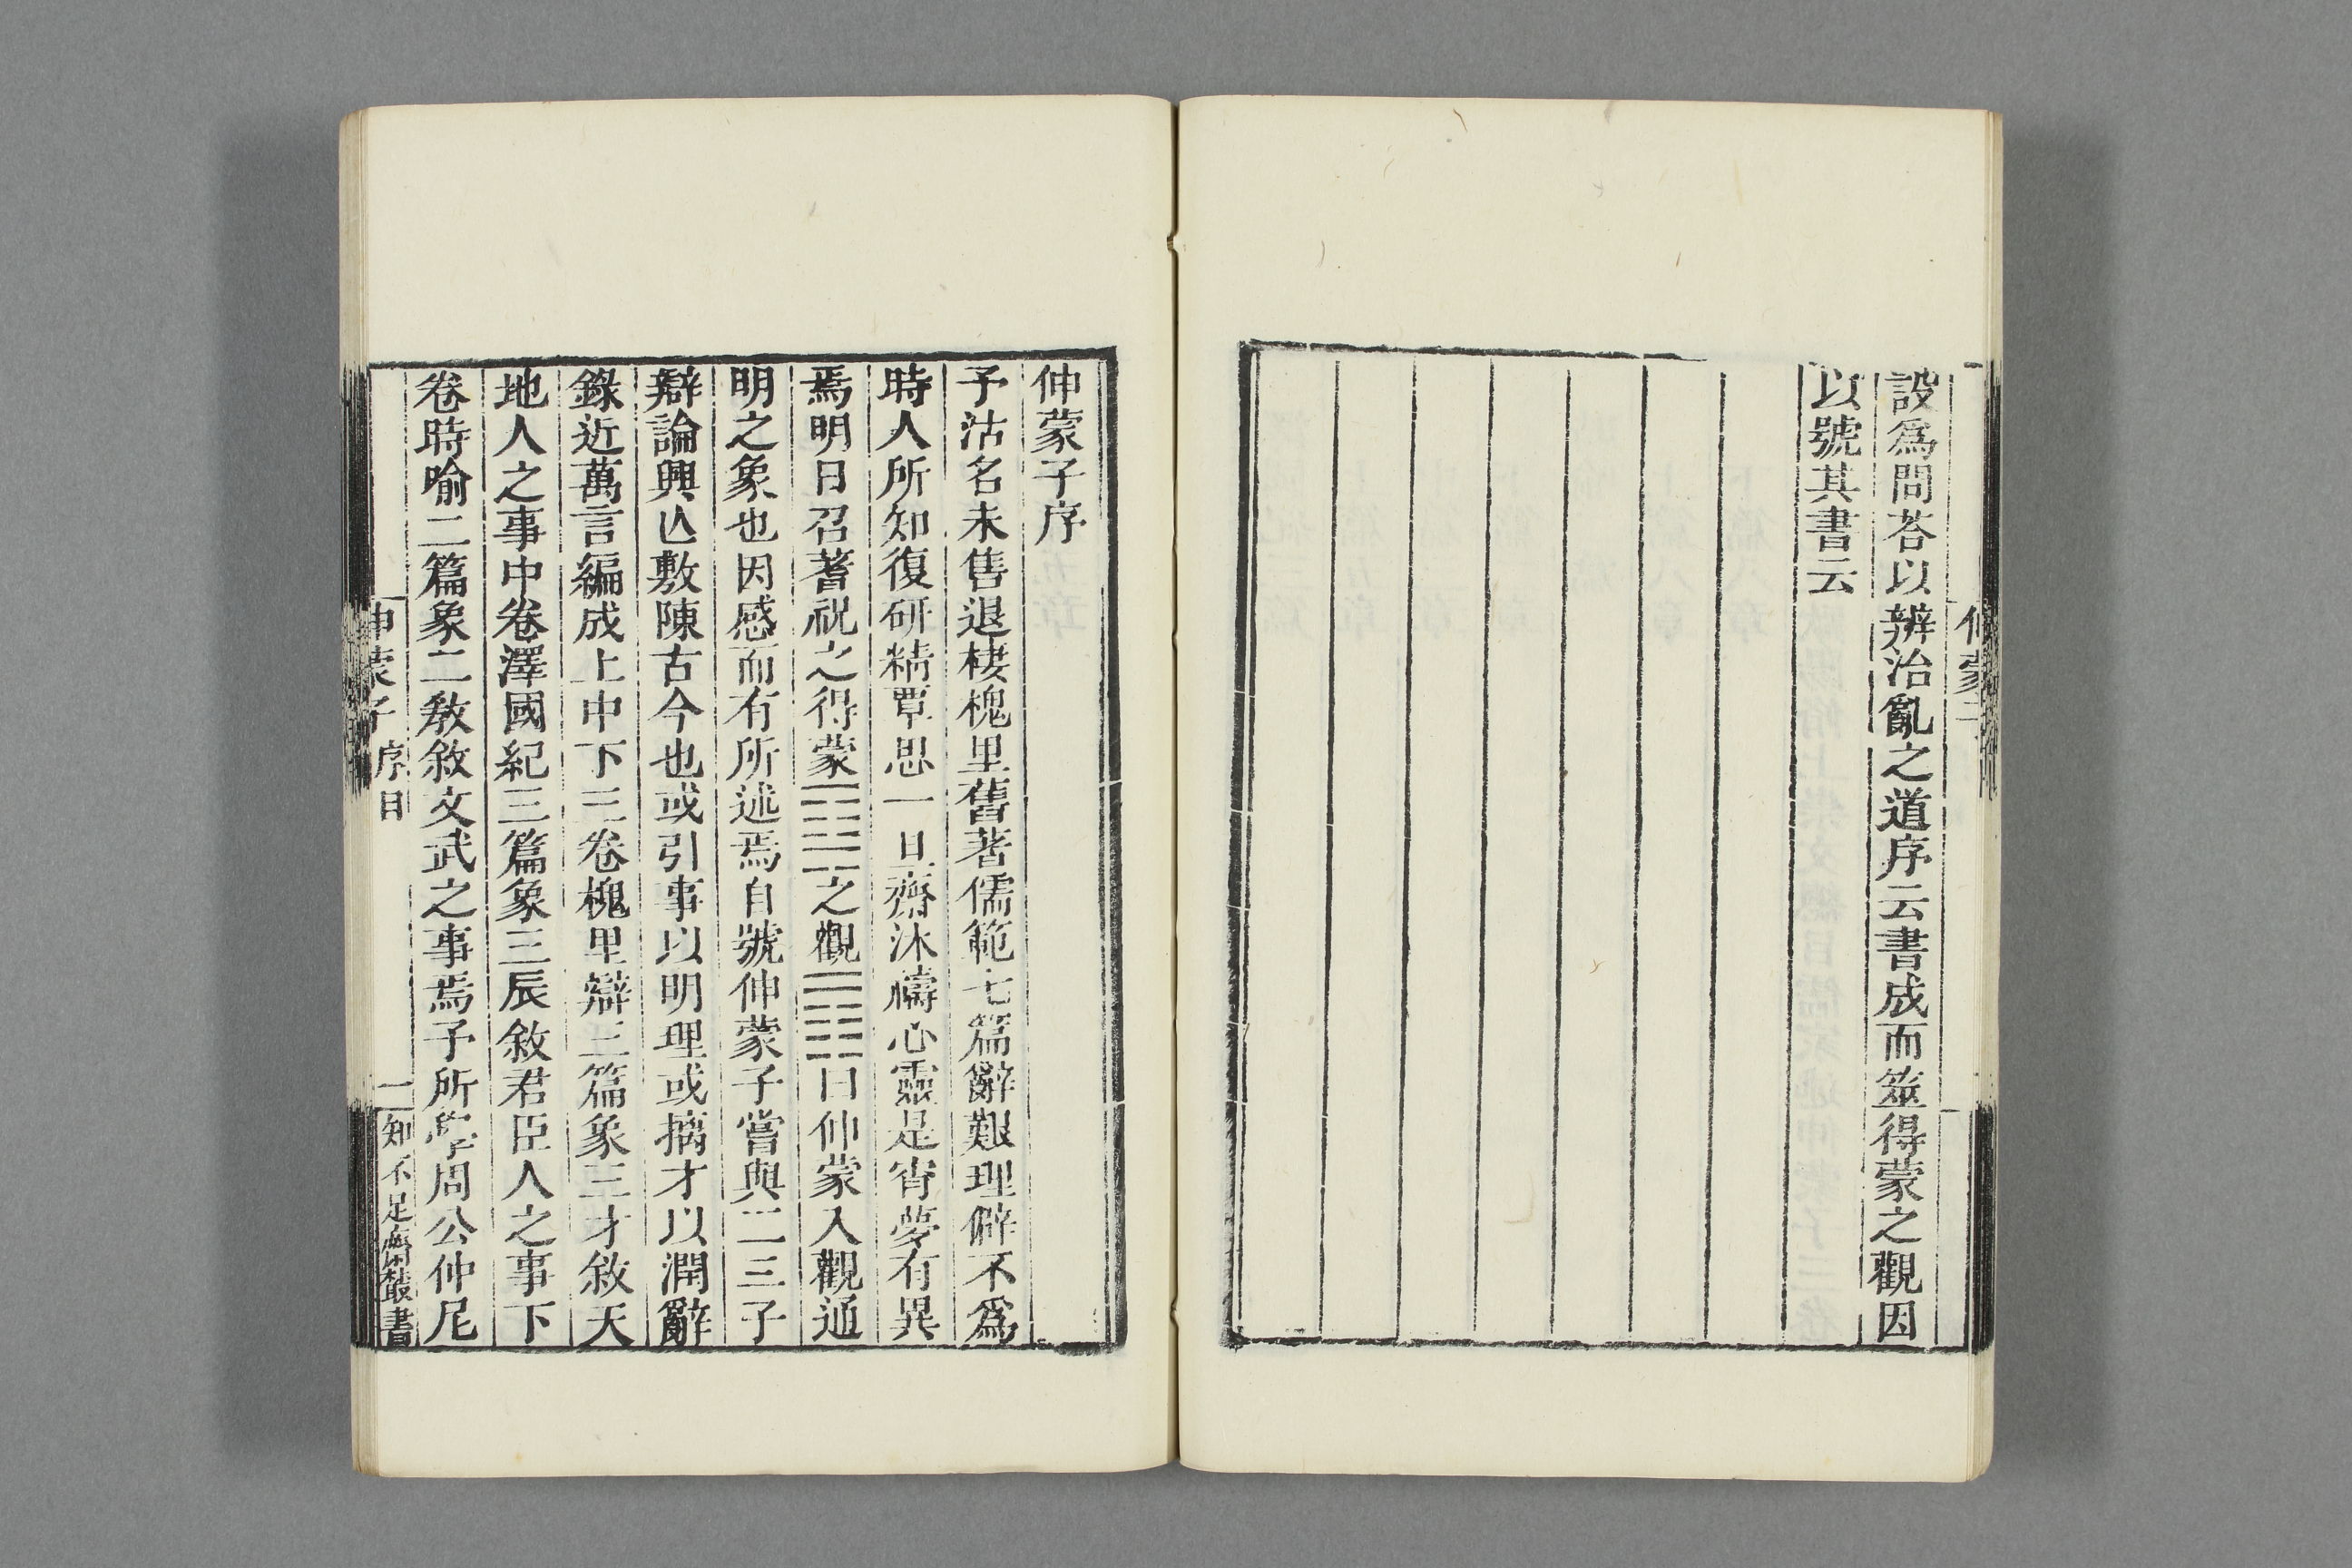 設爲問荅以辨治亂之道序云書成而筮得蒙之觀因
以號其書云
伸蒙子序
予沽名未售退棲槐里舊著儒範七篇辭艱理僻不爲
時人所知復研精覃思一日齋沐禱心靈是宵夢有異
焉明日召蓍祝之得蒙䷃之觀䷓曰伸蒙入觀通
明之象也因感而有所述焉自號伸蒙子嘗與二三子
辯論興亾敷陳古今也或引事以明理或摛才以潤辭
錄近萬言編成上中下三卷槐里辯三篇象三才敘天
地人之事中卷澤國紀三篇象三辰敘君臣人之事下
卷時喻二篇象二敎敘文武之事焉予所學周公仲尼
伸蒙子序目
一
知不足齋叢書